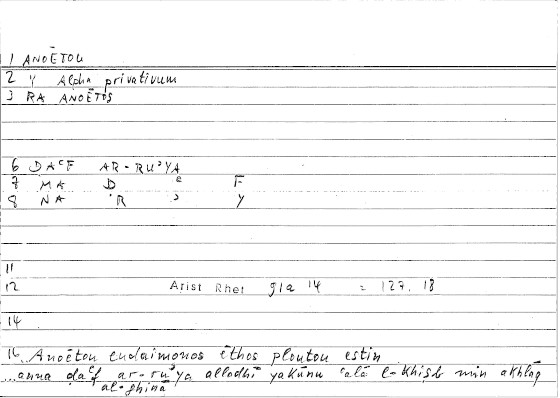 1 ANOĒTOU
2 Y Alpha privativum
3 RA ANOĒTOS
6 ḌAᶜF AR-RUʾYA
7 MA Ḍ ᶜ F
8 NA R ʾ Y
11
12 Arist Rhet 91a 14 = 127.18
14
16 Anoētou eudaimonos ēthos ploutou estin
...anna ḍaᶜf ar-ruʾya alladhī yakūnu ᶜalā l-khiṣb min akhlāq
al-ghinā